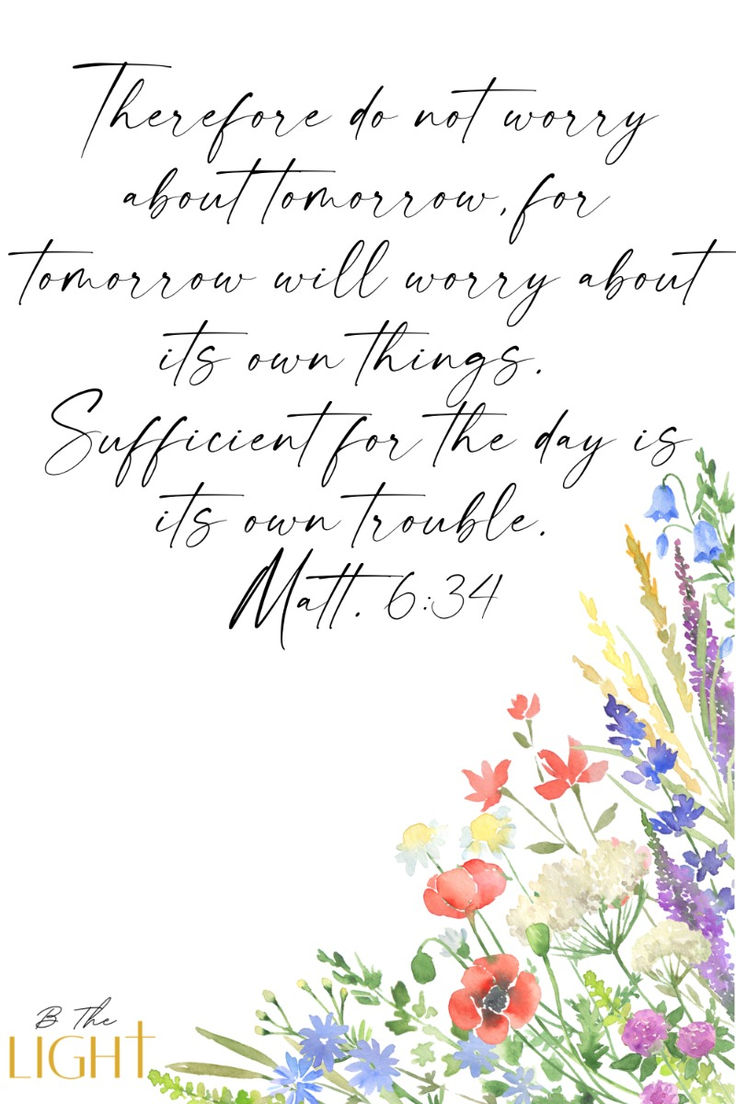 Therefore do not worry
about tomorrow, for
tomorrow will worry about
its own things.
Sufficient for the day is
its own trouble.
Matt. 6:34
B The
LIGHt